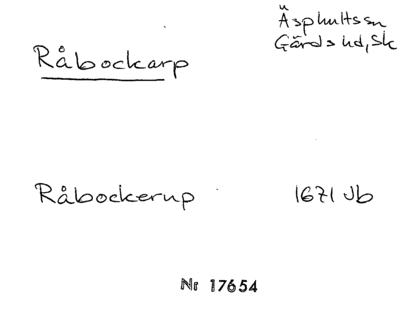 Råbockarp
Äsphultssn
Gärds hd, Sk
Råbockerup 1671 Jb
Nr 17654